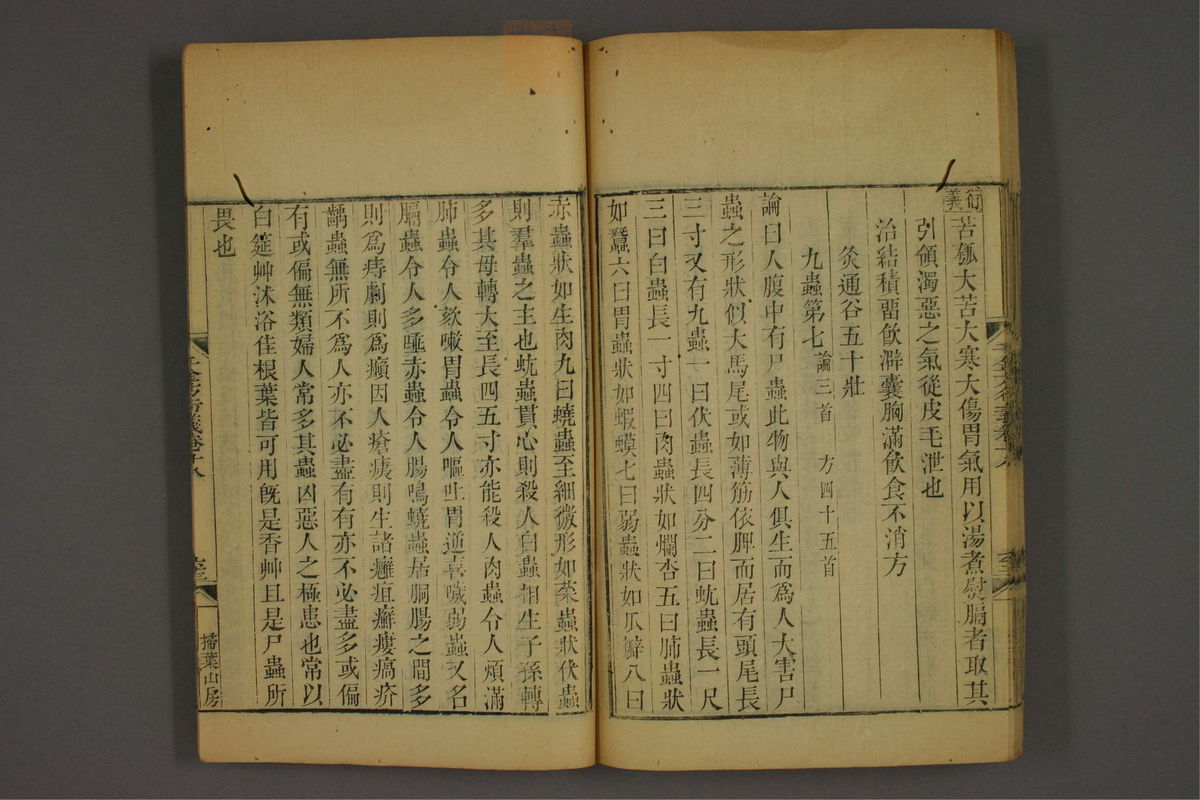 衍義
苦瓠大苦大寒大傷胃氣用以湯煮熨膈者取其
引領濁惡之氣從皮毛泄也
治結積畱飲澼囊胸滿飲食不消方
灸通谷五十壯
九蟲第七 論三首 方四十五首
論曰人腹中有尸蟲此物與人俱生而爲人大害尸
蟲之形狀似大馬尾或如薄筋依脾而居有頭尾長
三寸又有九蟲一曰伏蟲長四分二曰蚘蟲長一尺
三曰白蟲長一寸四曰肉蟲狀如爛杏五曰肺蟲狀
如蠶六曰胃蟲狀如蝦蟆七曰弱蟲狀如瓜瓣八曰
赤蟲狀如生肉九曰蟯蟲至細微形如菜蟲狀伏蟲
則羣蟲之主也蚘蟲貫心則殺人白蟲相生子孫轉
多其母轉大至長四五寸亦能殺人肉蟲令人煩滿
肺蟲令人欬嗽胃蟲令人嘔吐胃逆喜噦弱蟲又名
膈蟲令人多唾赤蟲令人腸鳴蟯蟲居胴腸之間多
則爲痔劇則爲癩因人瘡痍則生諸癰疽癬瘻瘑疥
齲蟲無所不爲人亦不必盡有有亦不必盡多或偏
有或偏無類婦人常多其蟲凶惡人之極患也常以
白筵艸沐浴佳根葉皆可用旣是香艸且是尸蟲所
畏也
千金方衍義卷十八
掃葉山房